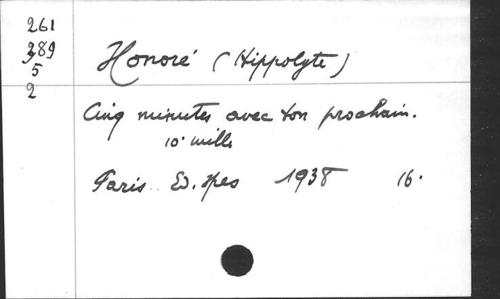 261
389
5
2
Honoré (Hippolyte)
Cinq minutes avec ton prochain.
10e mille
Paris. Ed. Spes 1938 16.